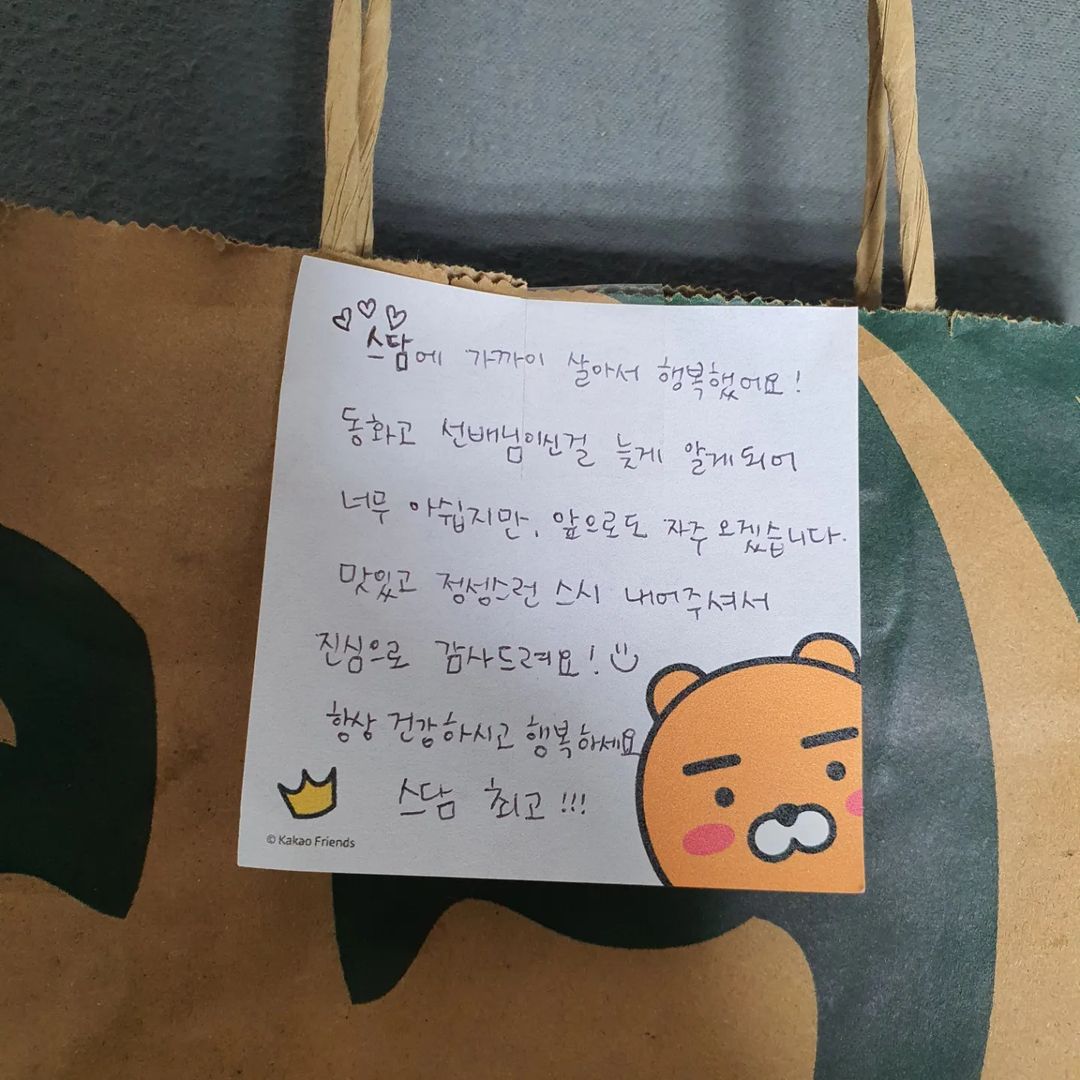 스담에 가까이 살아서 행복했어요!
동화고 선배님이신걸 늦게 알게되어
너무 아쉽지만, 앞으로도 자주 오겠습니다.
맛있고 정성스런 스시 내어주셔서
진심으로 감사드려요!
항상 건강하시고 행복하세요
스담 최고!!!
© Kakao Friends